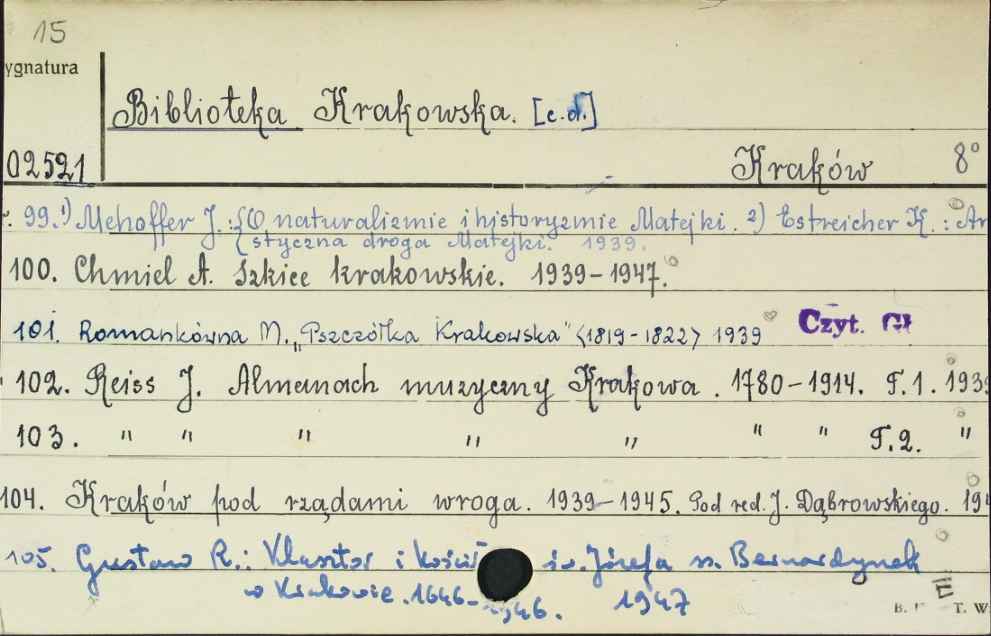 15
ygnatura
Biblioteka Krakowska. [c.d.]
02521
Kraków 8°
99. 1) Mehoffer J.: O naturalizmie i historyzmie Matejki. 2) Estreicher K.: Ar
styczna droga Matejki. 1939.
100. Chmiel A. Szkice krakowskie. 1939-1947.
101. Romankówna M. „Pszczółka Krakowska" <1819-1822> 1939
Czyt. Gł
102. Reiss J. Almanach muzyczny Krakowa. 1780-1914. T.1. 1939
103. " " " " " " " T.2. "
104. Kraków pod rządami wroga. 1939-1945. Pod red. J. Dąbrowskiego. 194
105. Gustaw R.: Klasztor i kości św. Józefa ss. Bernardynek
w Krakowie. 1646-1946. 1947
E
B. T. W